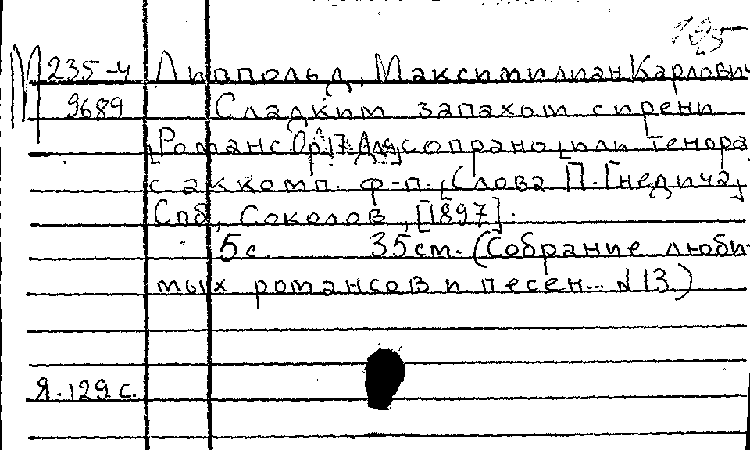 195
М 235-4 Лиапольд, Максимилиан Карлович
9689 Сладким запахом сирени
[Романс Op.17. Для сопрано или тенора
с аккомп. ф-п., Слова П. Гнедича,
Спб, Соколов, [1897].
5 с. 35 см. (Собрание люби-
мых романсов и песен... №13)
Я. 129 с.